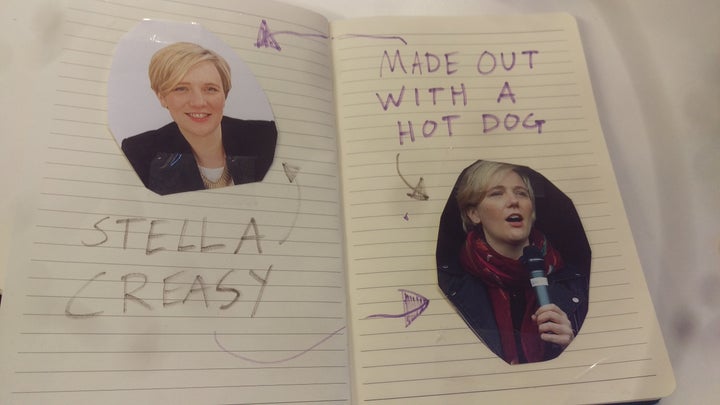 STELLA
CREASY
MADE OUT
WITH A
HOT DOG